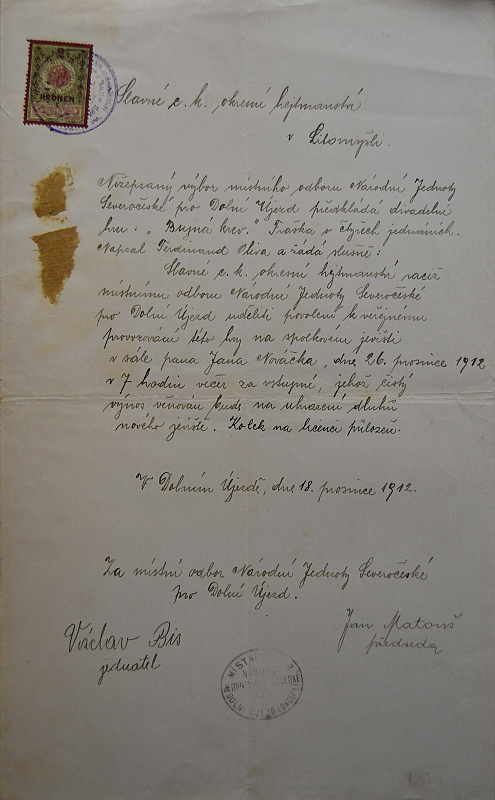 KRONEN
Slavné c. k. okresní hejtmanství
v Litomyšli.
Nížepsaný výbor místního odboru Národní Jednoty
Severočeské pro Dolní Újezd předkládá divadelní
hru: „Bujná krev." Fraška o čtyřech jednáních.
Napsal Ferdinand Oliva a žádá slušně:
Slavné c. k. okresní hejtmanství račiž
místnímu odboru Národní Jednoty Severočeské
pro Dolní Újezd uděliti povolení k veřejnému
provozování této hry na spolkovém jevišti
v sále pana Jana Nováčka, dne 26. prosince 1912
v 7 hodin večer za vstupné, jehož čistý
výnos věnován bude na uhrazení dluhu
nového jeviště. Kolek na licenci přiložen.
V Dolním Újezdě, dne 18. prosince 1912.
Za místní odbor Národní Jednoty Severočeské
pro Dolní Újezd.
Jan Matouš
předseda
Václav Bis
jednatel
MÍSTNÍ